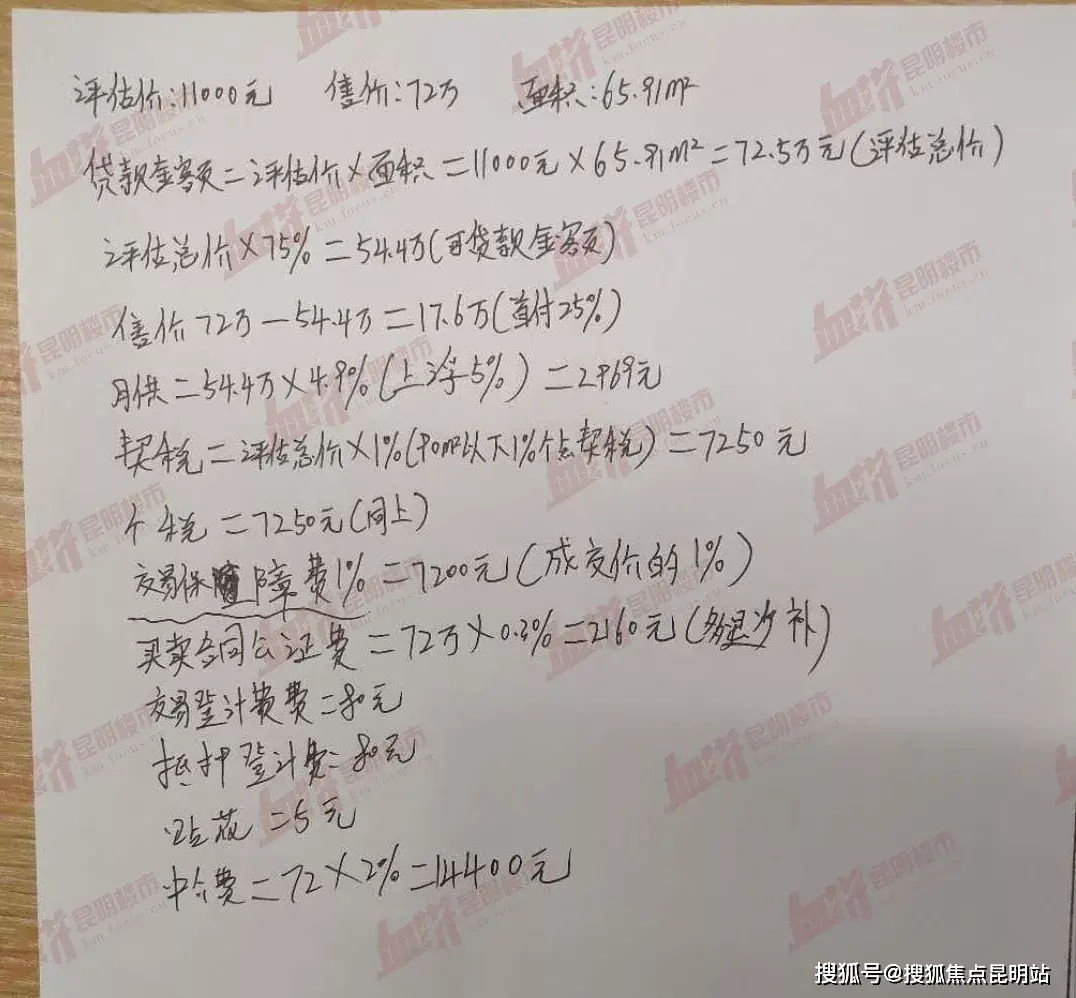 评估价:11000元 售价:72万 面积:65.91m²
贷款金额=评估价×面积=11000元×65.91m²=72.5万元(评估总价)
评估总价×75%=54.4万(可贷款金额)
售价72万-54.4万=17.6万(首付25%)
月供=54.4万×4.9%(上浮5%)=2969元
契税=评估总价×1%(90m²以下1%个点契税)=7250元
个税=7250元(同上)
交易保障费1%=7200元(成交价的1%)
买卖合同公证费=72万×0.3%=2160元(多退少补)
交易登计费费=80元
抵押登计费=80元
贴花=5元
中介费=72×2%=14400元
昆明楼市
km.focus.cn
搜狐号@搜狐焦点昆明站